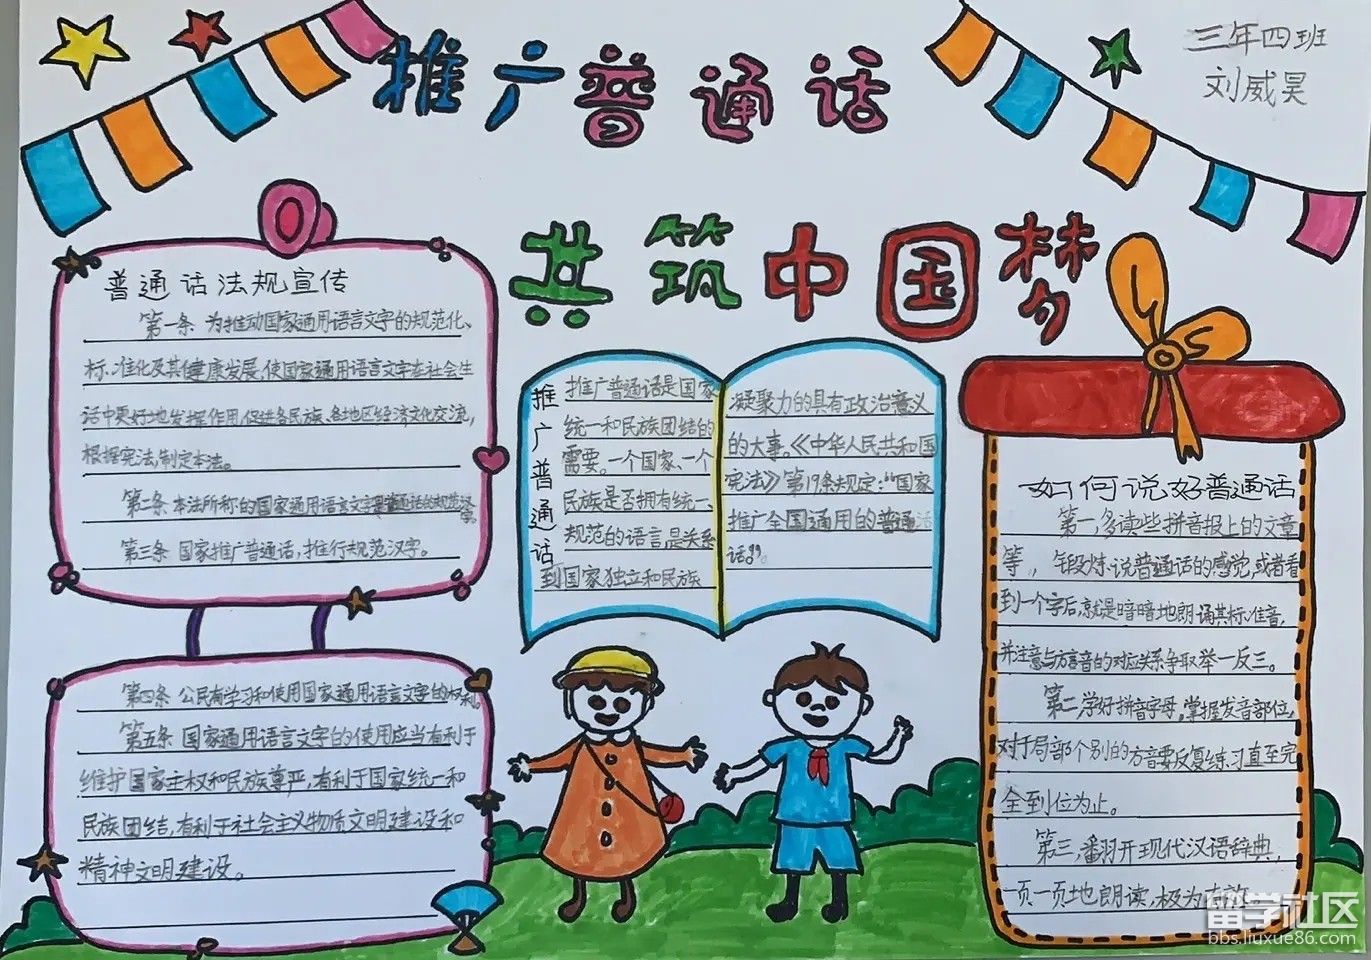 三年四班
刘威昊
推广普通话
共筑中国梦
普通话法规宣传
第一条 为推动国家通用语言文字的规范化、
标准化及其健康发展,使国家通用语言文字在社会生
活中更好地发挥作用,促进各民族、各地区经济文化交流,
根据宪法,制定本法。
第二条 本法所称的国家通用语言文字是普通话和规范
第三条 国家推广普通话,推行规范汉字。
第四条 公民有学习和使用国家通用语言文字的权利。
第五条 国家通用语言文字的使用应当有利于
维护国家主权和民族尊严,有利于国家统一和
民族团结,有利于社会主义物质文明建设和
精神文明建设。
推广普通话
推广普通话是国家
统一和民族团结的
需要。一个国家、一个
民族是否拥有统一、
规范的语言,是关系
到国家独立和民族
凝聚力的具有政治意义
的大事。《中华人民共和国
宪法》第19条规定:“国家
推广全国通用的普通话
话。”。
如何说好普通话
第一,多读些拼音报上的文章
等,锻炼说普通话的感觉,或者看
到一个字后,就是暗暗地朗诵其标准音,
并注意与方言音的对应关系争取举一反三。
第二,学好拼音字母,掌握发音部位,
对于局部个别的方音要反复练习直至完
全到位为止。
第三,翻开现代汉语辞典,
一页一页地朗读,极为有效
留学社区
bbs.liuxue86.com